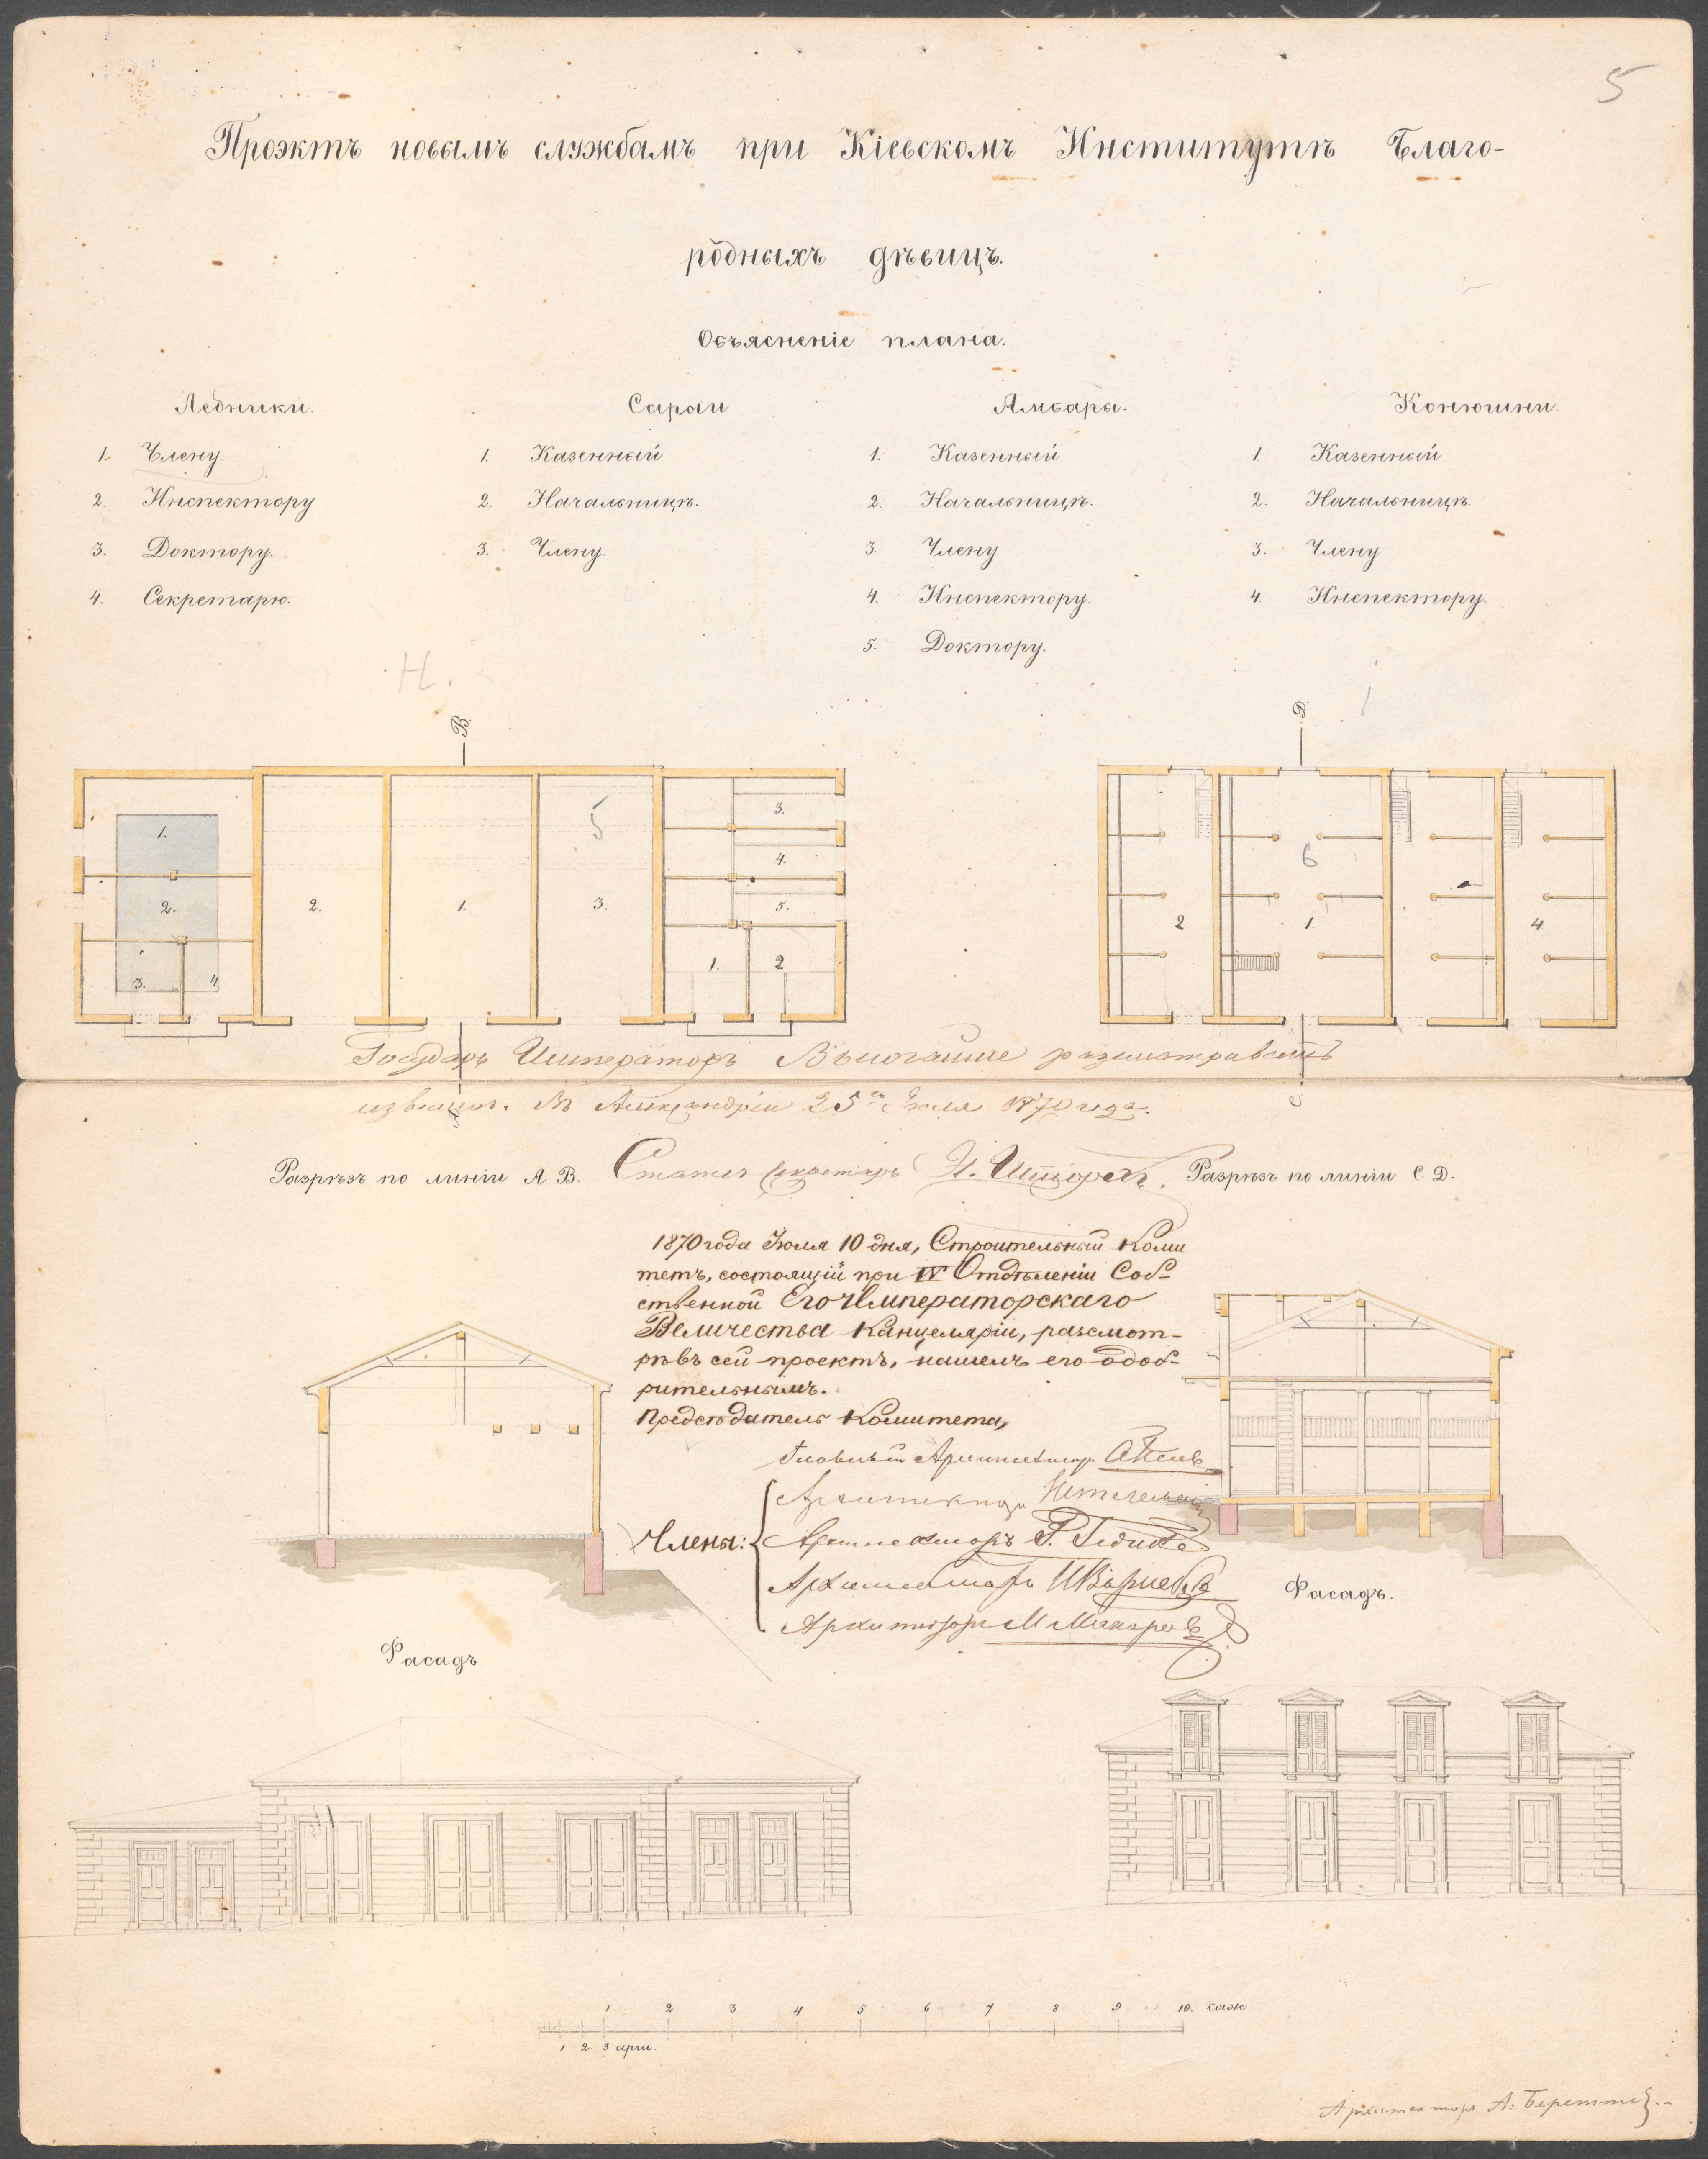 5
Проэктъ новымъ службамъ при Кіевскомъ Институтѣ Благо-
родныхъ дѣвицъ.
Объясненіе плана.
Ледники.
1. Члену.
2. Инспектору
3. Доктору.
4. Секретарю.
Сараи
1. Казенный
2. Начальницѣ.
3. Члену.
Амбары.
1. Казенный
2. Начальницѣ.
3. Члену
4. Инспектору.
5. Доктору.
Конюшни.
1. Казенный
2. Начальницѣ.
3. Члену
4. Инспектору.
Н.
В.
Д.
1. 2. 3. 4
2. 1. 3.
5
3. 4. 5. 1. 2
2 1 4
6
С
Государь Императоръ Высочайше разсматривать
изволилъ. Въ Александріи 25го Іюля 1870 года.
Статсъ Секретарь
Разрѣзъ по линіи А В.
Разрѣзъ по линіи С Д.
1870 года Іюля 10 дня, Строительный Коми
тетъ, состоящій при IV Отдѣленіи Соб-
ственной Его Императорскаго
Величества Канцеляріи, разсмот-
рѣвъ сей проектъ, нашелъ его одоб-
рительнымъ.
Предсѣдатель Комитета,
Главный Архитекторъ
Члены:
Архитекторъ
Архитекторъ Р. Гедике
Архитекторъ
Архитекторъ М Макаровъ
Фасадъ
Фасадъ.
1 2 3 4 5 6 7 8 9 10. саж
1 2 3 арш.
Архитекторъ А. Беретти